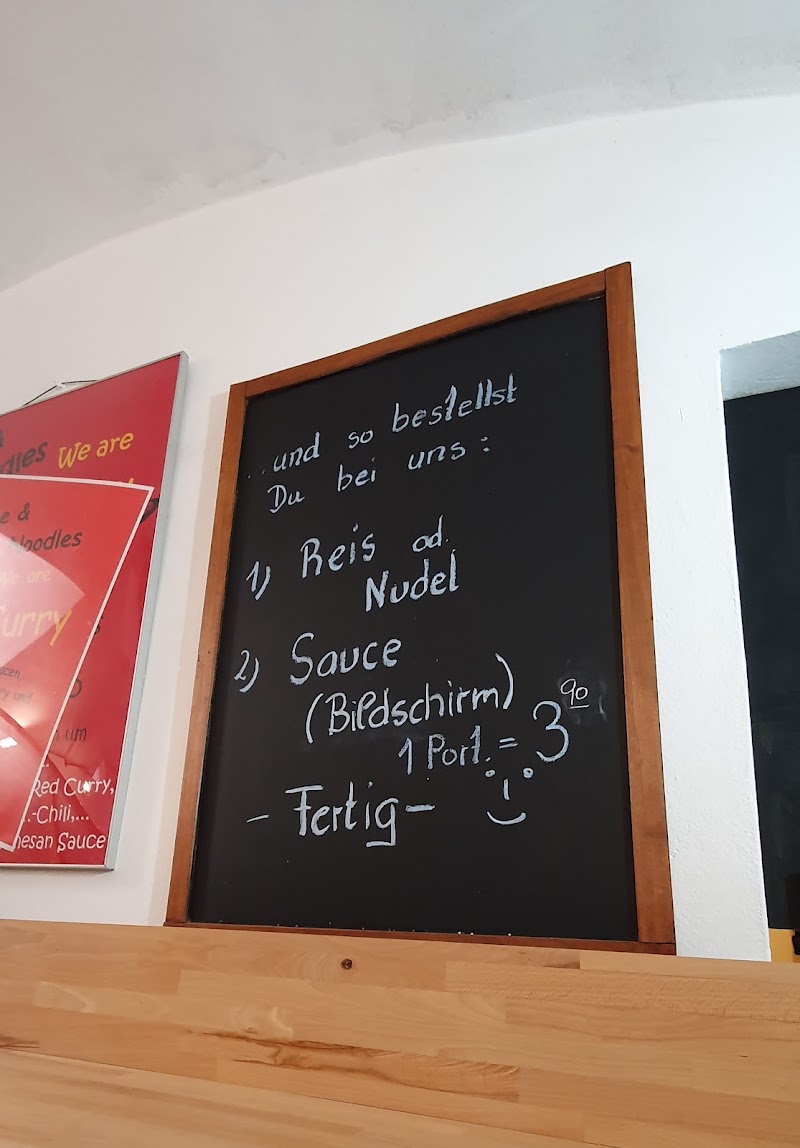 ..und so bestellst
Du bei uns:
1) Reis od.
Nudel
2) Sauce
(Bildschirm)
1 Port. = 3 90
- Fertig -
We are
e &
Noodles
We are
Curry
um
Red Curry,
..-Chili,...
Sauce